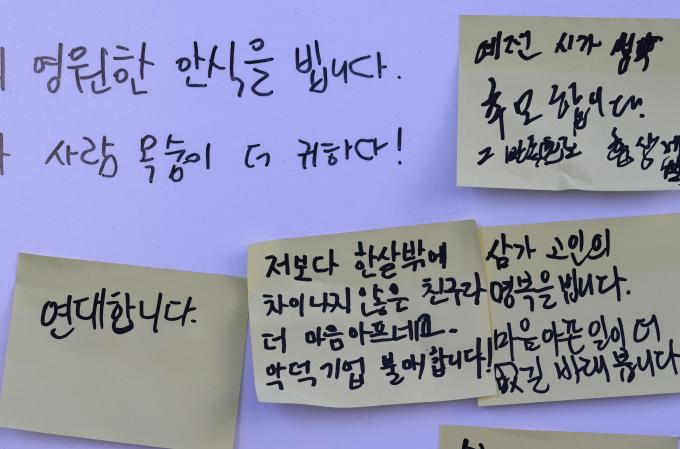 영원한 안식을 빕니다.
사람 목숨이 더 귀하다!
예전 시가
추모합니다.
그
연대합니다.
저보다 한살밖에
차이나지 않은 친구라
더 마음아프네요.
악덕기업 불매합니다!
삼가 고인의
명복을 빕니다.
마음아픈일이 더
없길 바래봅니다